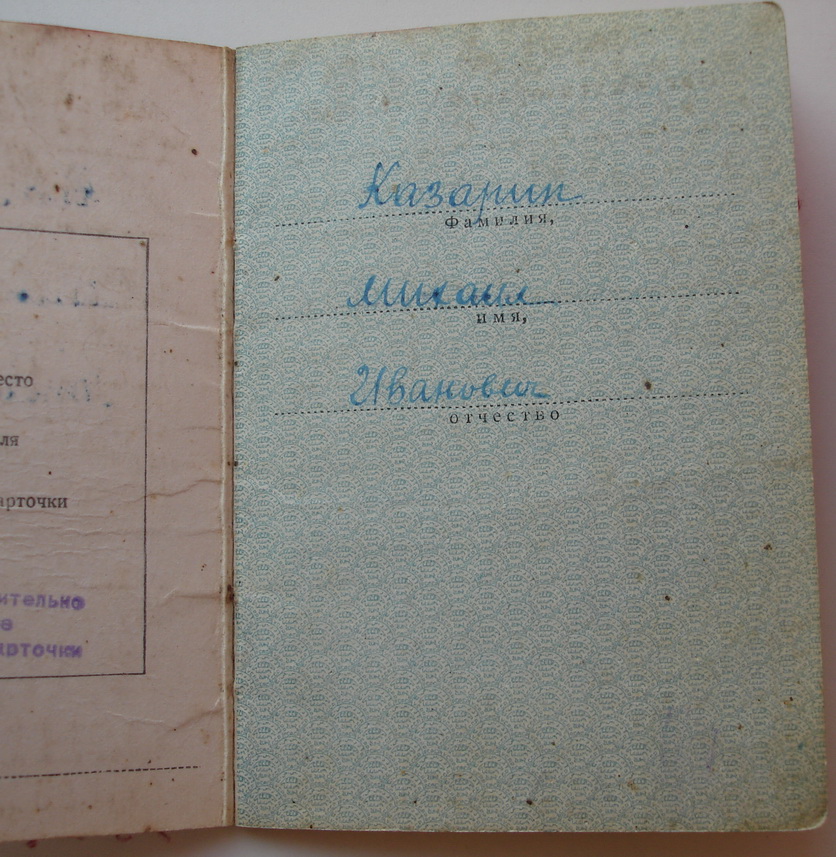 есто
ля
арточки
ительно
е
арточки
Казарин
Фамилия,
Михаил
имя,
Иванович
отчество